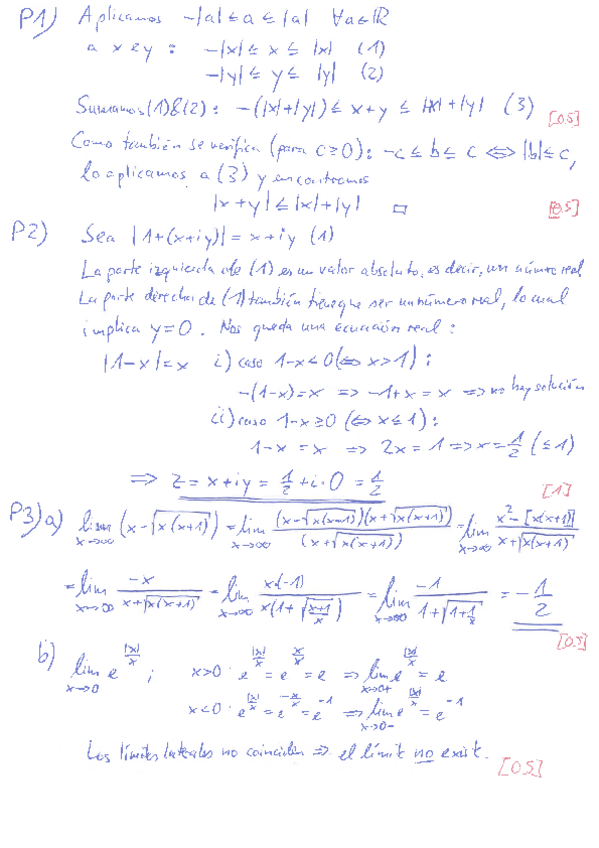 P1) Aplicamos -|a| ≤ a ≤ |a| ∀a∈ℝ
a x e y : -|x| ≤ x ≤ |x| (1)
-|y| ≤ y ≤ |y| (2)
Sumamos (1)&(2): -(|x|+|y|) ≤ x+y ≤ |x|+|y| (3) [0.5]
Como también se verifica (para c≥0): -c ≤ b ≤ c ⇔ |b| ≤ c,
lo aplicamos a (3) y encontramos
|x+y| ≤ |x|+|y| □ [0.5]
P2) Sea |1+(x+iy)| = x+iy (1)
La parte izquierda de (1) es un valor absoluto, es decir, un número real
La parte derecha de (1) también tiene que ser un número real, lo cual
implica y=0. Nos queda una ecuación real:
|1-x| = x i) caso 1-x<0 (⇔ x>1):
-(1-x)=x ⇒ -1+x = x ⇒ no hay solución
ii) caso 1-x≥0 (⇔ x≤1):
1-x = x ⇒ 2x = 1 ⇒ x = 1/2 (≤1)
⇒ z = x+iy = 1/2 + i·0 = 1/2 [1]
P3) a) lim x→∞ (x-√x(x+1)) = lim x→∞ (x-√x(x+1))(x+√x(x+1)) / (x+√x(x+1)) = lim x→∞ x²-[x(x+1)] / x+√x(x+1)
= lim x→∞ -x / x+√x(x+1) = lim x→∞ x(-1) / x(1+√(x+1)/x) = lim x→∞ -1 / 1+√1+1/x = -1/2 [0.5]
b) lim x→0 e^(|x|/x) ; x>0: e^(|x|/x) = e^(x/x) = e ⇒ lim x→0+ e^(|x|/x) = e
x<0: e^(|x|/x) = e^(-x/x) = e^-1 ⇒ lim x→0- e^(|x|/x) = e^-1
Los límites laterales no coinciden ⇒ el límit no exist. [0.5]